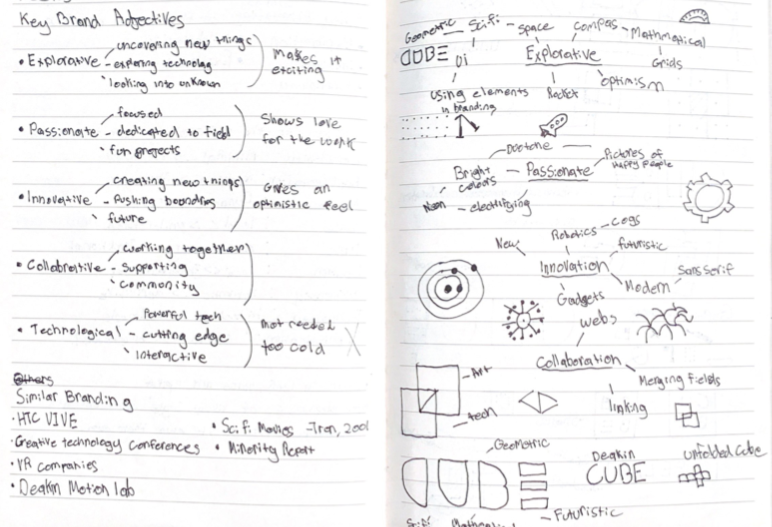 Key Brand Adjectives
• Explorative - uncovering new things
- exploring technology
looking into unknown
Makes it
exciting
• Passionate - focused
- dedicated to field
fun projects
Shows love
for the work
• Innovative - creating new things
- Pushing boundries
future
Gives an
optimistic feel
• Collabrative - working together
- supporting
community
• Technological - Powerful tech
- cutting edge
interactive
not needed
too cold
Others
Similar Branding
• HTC VIVE
• Creative technology Conferences
• VR companies
• Deakin Motion lab
• Sci fi Movies - Tron, 2001
• Minority Report
Geometric - Sci fi - space
Compas - Mathmatical
CUBE
Explorative
Grids
using elements
in branding
Rocket
optimism
Duotone
Bright
colours
- Passionate
Pictures of
Happy People
Neon - electrifying
Robotics - cogs
New
futuristic
Innovation
Modern
Sans serif
Gadgets
webs
Collaboration
- Art
- tech
linking
Merging fields
Geometric
Deakin
CUBE
unfolded cube
- Futuristic
Scifi